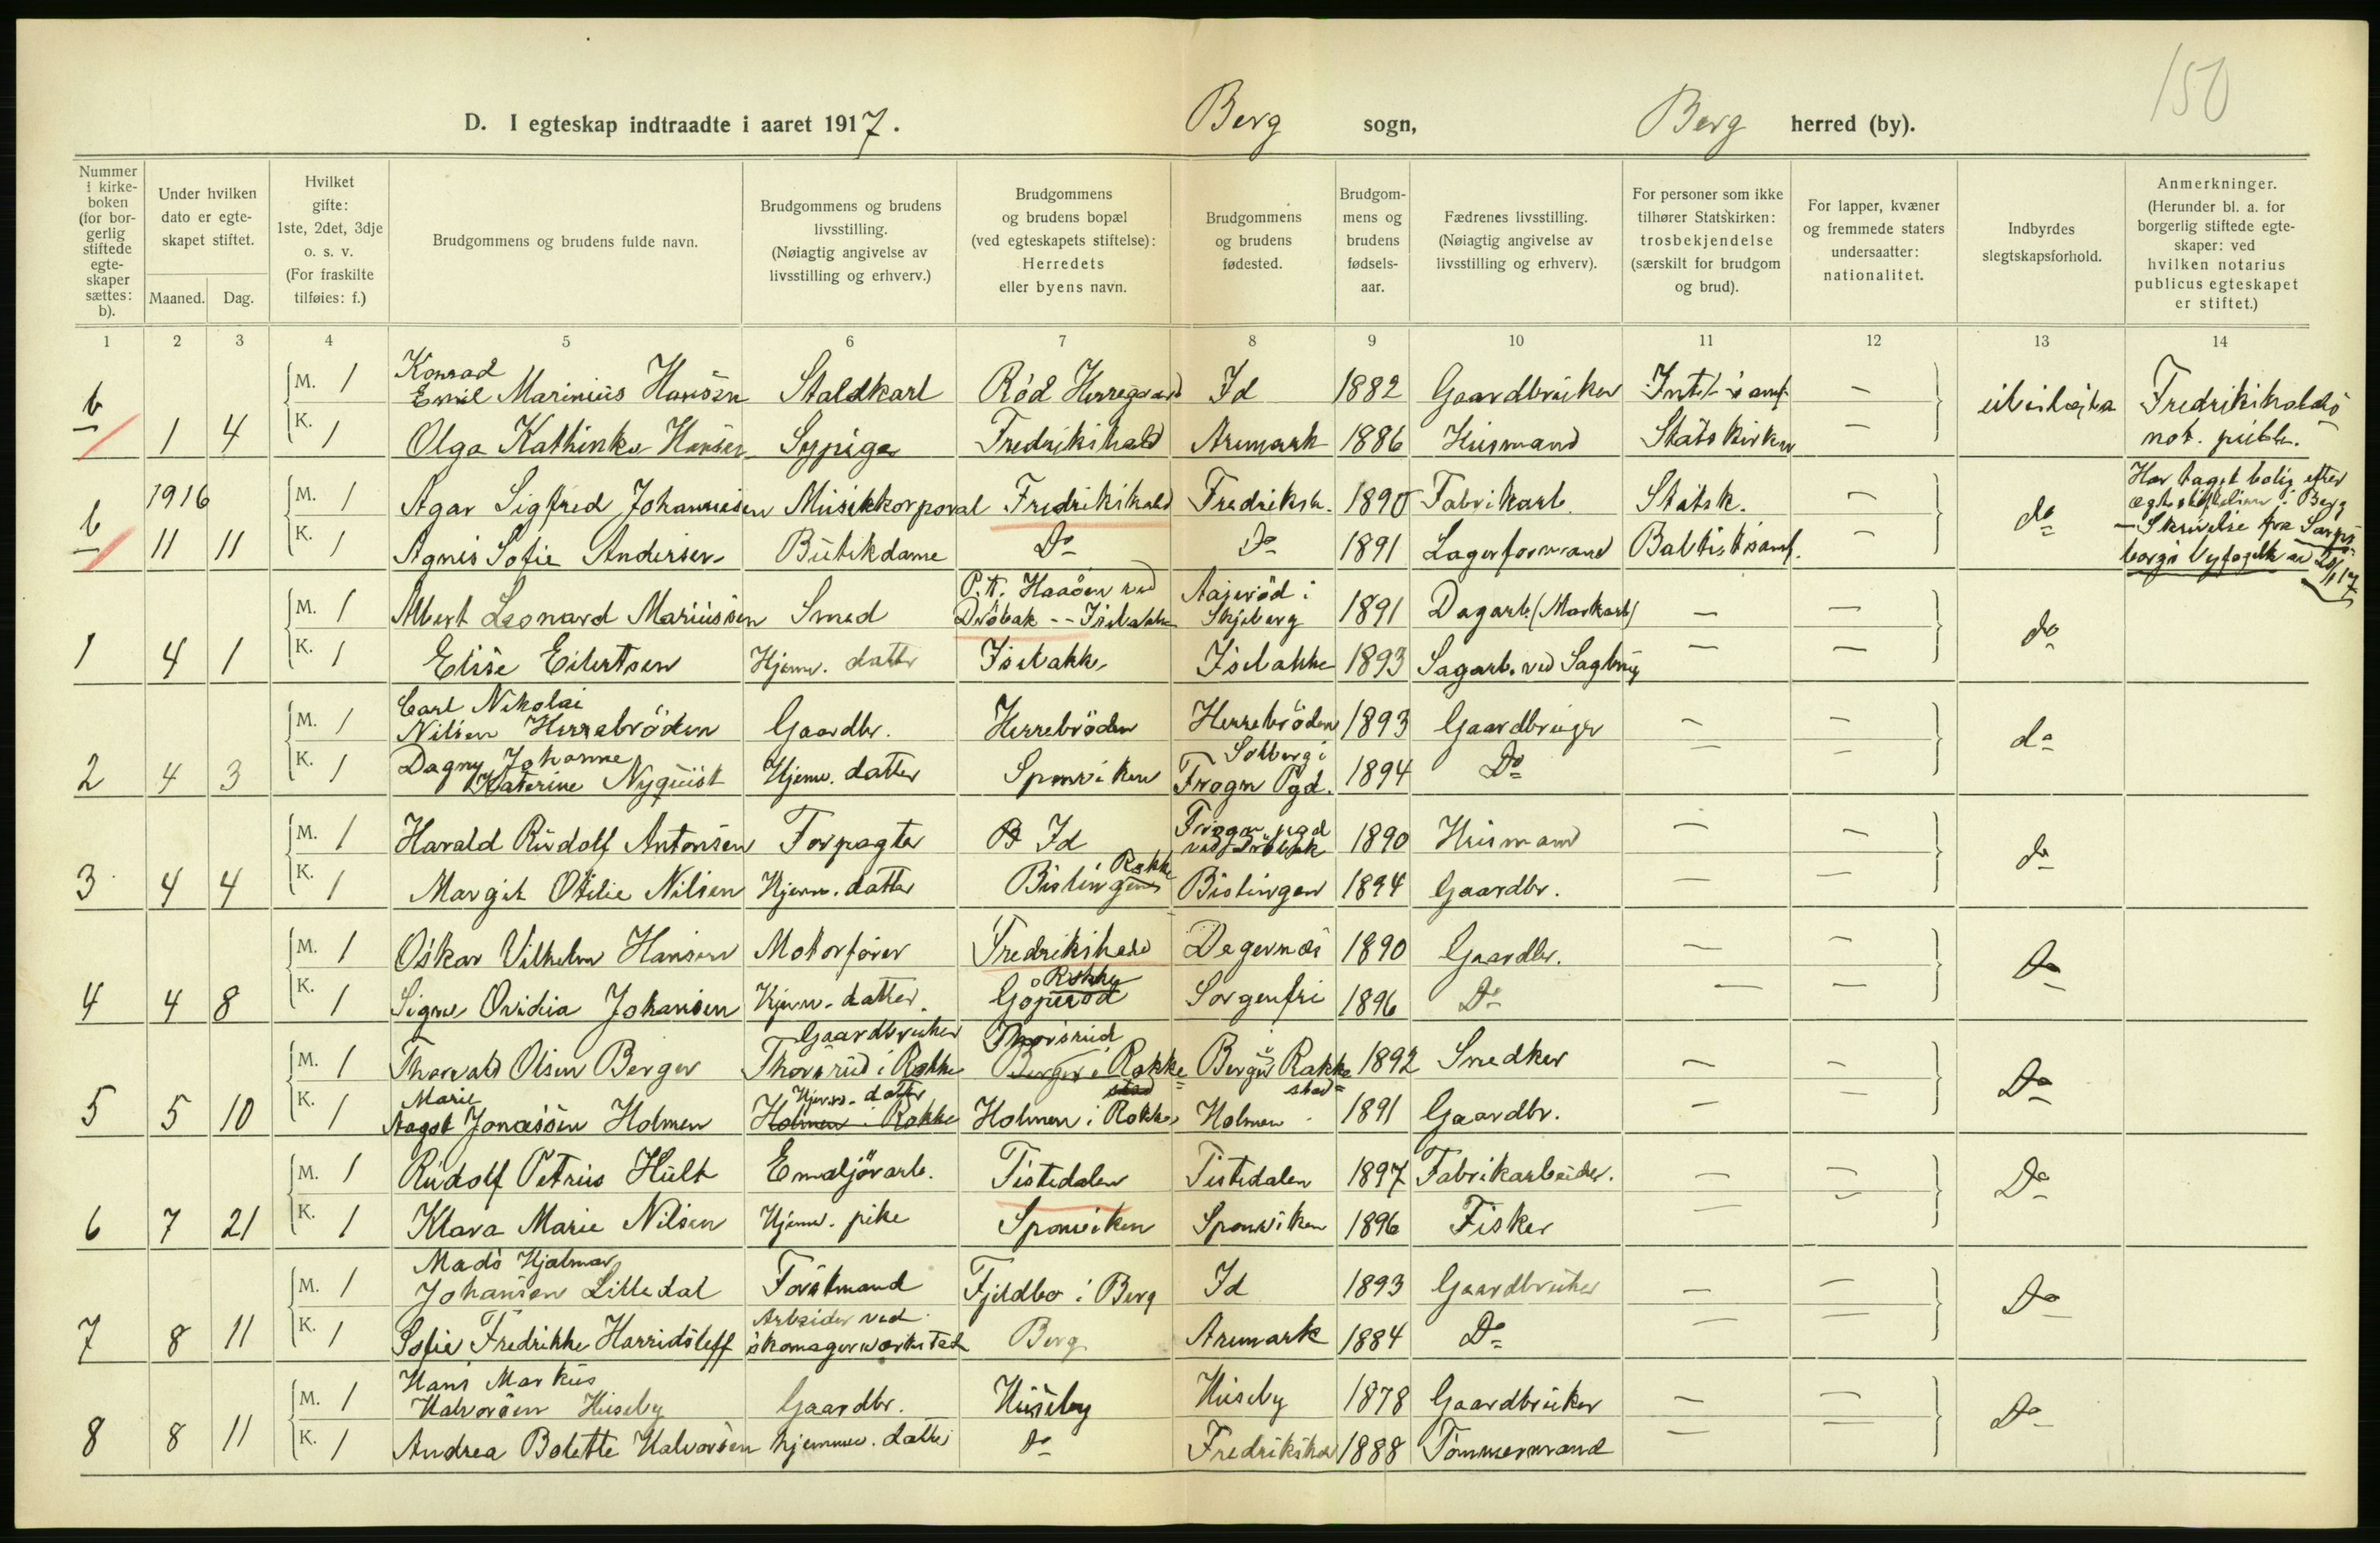 150
D. I egteskap indtraadte i aaret 1917. Berg sogn, Berg herred (by).
Nummer i kirkeboken (for borgerlig stiftede egteskaper sættes: b).
Under hvilken dato er egteskapet stiftet.
Maaned. Dag.
Hvilket gifte: 1ste, 2det, 3dje o. s. v. (For fraskilte tilføies: f.)
Brudgommens og brudens fulde navn.
Brudgommens og brudens livsstilling. (Nøiagtig angivelse av livsstilling og erhverv.)
Brudgommens og brudens bopæl (ved egteskapets stiftelse): Herredets eller byens navn.
Brudgommens og brudens fødested.
Brudgommens og brudens fødselsaar.
Fædrenes livsstilling. (Nøiagtig angivelse av livsstilling og erhverv).
For personer som ikke tilhører Statskirken: trosbekjendelse (særskilt for brudgom og brud).
For lapper, kvæner og fremmede staters undersaatter: nationalitet.
Indbyrdes slegtskapsforhold.
Anmerkninger. (Herunder bl. a. for borgerlig stiftede egteskaper: ved hvilken notarius publicus egteskapet er stiftet.)
1 2 3 4 5 6 7 8 9 10 11 12 13 14
M. 1 Konrad Emil Marinius Hansen Staldkarl Röd Herregaard Id 1882 Gaardbruker — Fredrikshalds
b 1 4 K. 1 Olga Kathinka Hansen Sypige Fredrikshald Aremark 1886 Husmand Statskirken — not. publ.
1916 M. 1 Agar Sigfred Johannesen Musikkorporal Fredrikshald Fredriksh. 1890 Fabrikarb. Statsk. — do Har taget bolig efter egtestiftelsen i Berg
b 11 11 K. 1 Agnes Sofie Andersen Butikdame Do Do 1891 Lagerformand Babtistsamf. — Skrivelse fra Sarpsborgs byfogd
M. 1 Albert Leonard Mariussen Smed Dröbak -- Isebakke Skjeberg 1891 Dagarb. (Markarb) — — do
1 4 1 K. 1 Elise Eilertsen Hjemv. datter Isebakke Isebakke 1893 Sagarb. ved Sagbrug — —
M. 1 Carl Nikolai Nilsen Herrebröden Gaardbr. Herrebröden Herrebröden 1893 Gaardbruger — — do
2 4 3 K. 1 Dagny Johanne Katerine Nyquist Hjemv. datter Sponviken Solberg i Frogn Pgd. 1894 Do — —
M. 1 Harald Rudolf Antonsen Forpagter Id Frogn pgd ved Dröbak 1890 Husmand — — do
3 4 4 K. 1 Margit Otilie Nilsen Hjemv. datter Bistingen Rokke Bistingen 1894 Gaardbr. — —
M. 1 Oskar Vilhelm Hansen Motorförer Fredrikshald Degernæs 1890 Gaardbr. — — Do
4 4 8 K. 1 Signe Ovidia Johansen Hjemv. datter. Rokke Sorgenfri 1896 Do — —
M. 1 Thorvald Olsen Berger Gaardbruker Thorsrud i Rokke Thorsrud Berger i Rokke Berger Rokke 1892 Snedker — — Do
5 5 10 K. 1 Aagot Marie Jonassen Holmen Hjemv. datter Holmen i Rokke Holmen i Rokke Holmen 1891 Gaardbr. — —
M. 1 Rudolf Petrus Hult Emaljörarb. Tistedalen Tistedalen 1897 Fabrikarbeider. — — Do
6 7 21 K. 1 Klara Marie Nilsen Hjemv. pike Sponviken Sponviken 1896 Fisker — —
M. 1 Mads Hjalmar Johansen Lilledal Forstmand Fjeldbo i Berg Id 1893 Gaardbruker — — Do
7 8 11 K. 1 Sofie Fredrikke Harridsleff Arbeider ved skomagerværksted Berg Aremark 1884 Do — —
M. 1 Hans Markus Halvorsen Huseby Gaardbr. Huseby Huseby 1878 Gaardbruker — — Do
8 8 11 K. 1 Andrea Bolette Halvorsen hjemmev. datter do Fredrikshald 1888 Tömmermand — —